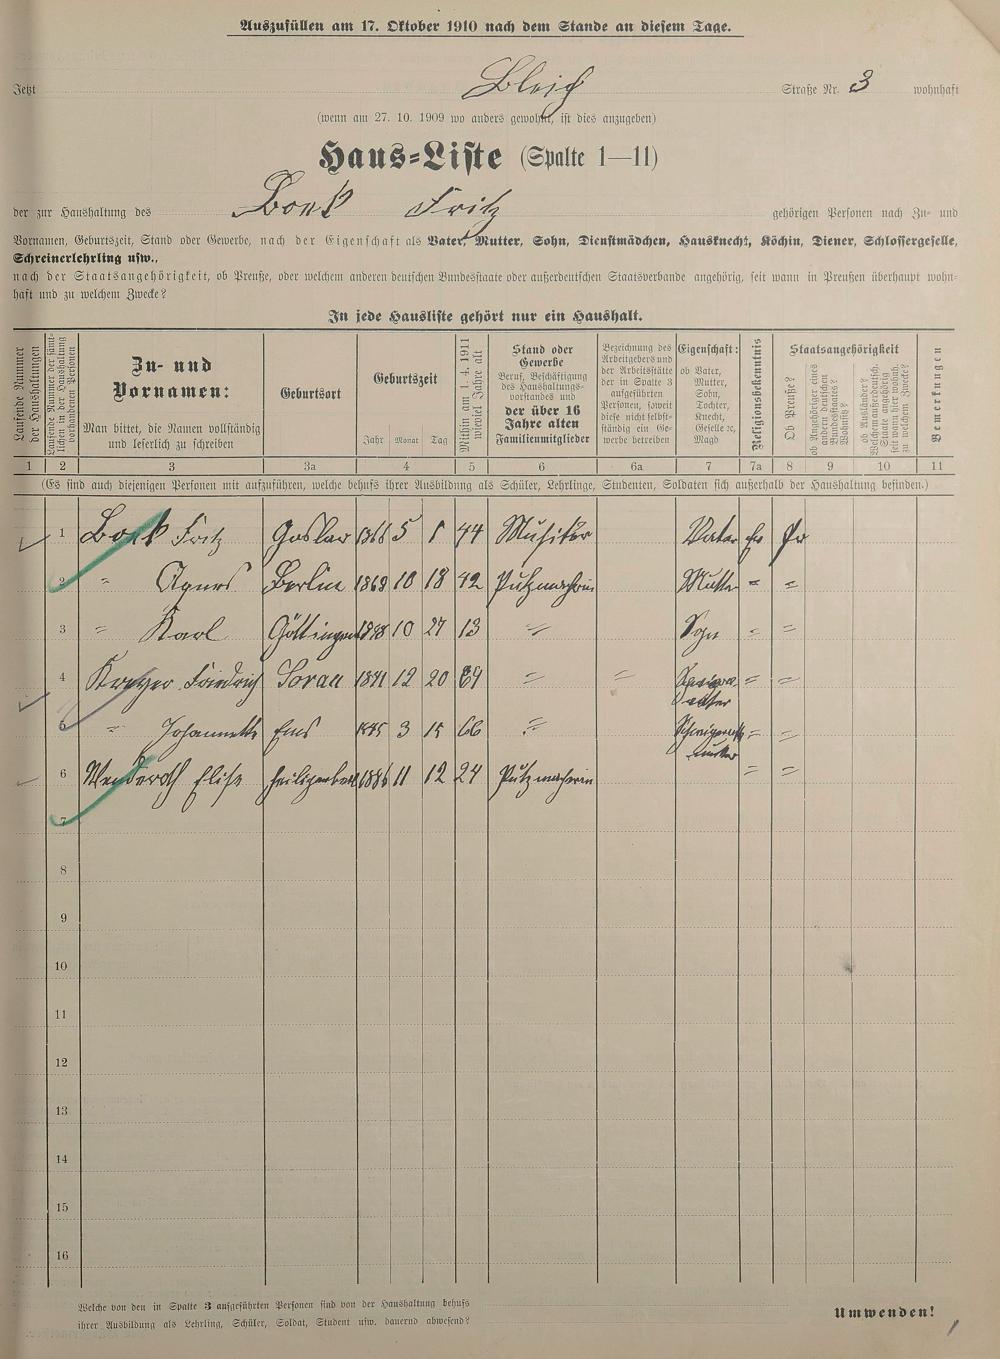 Auszufüllen am 17. Oktober 1910 nach dem Stande an diesem Tage.
Jetzt Bleich Straße Nr. 3 wohnhaft
(wenn am 27. 10. 1909 wo anders gewohnt, ist dies anzugeben)
Haus-Liste (Spalte 1—11)
der zur Haushaltung des Bonk Fritz gehörigen Personen nach Zu- und
Vornamen, Geburtszeit, Stand oder Gewerbe, nach der Eigenschaft als Vater, Mutter, Sohn, Dienstmädchen, Hausknecht, Köchin, Diener, Schlossergeselle,
Schreinerlehrling usw.,
nach der Staatsangehörigkeit, ob Preuße, oder welchem anderen deutschen Bundesstaate oder außerdeutschen Staatsverbande angehörig, seit wann in Preußen überhaupt wohn-
haft und zu welchem Zwecke?
In jede Hausliste gehört nur ein Haushalt.
Laufende Nummer der Haushaltungen
Laufende Nummer der sämt-lichen in der Haushaltung vorhandenen Personen
Zu- und Vornamen:
Man bittet, die Namen vollständig und leserlich zu schreiben
Geburtsort
Geburtszeit
Jahr Monat Tag
Mithin am 1. 4. 1911 wieviel Jahre alt
Stand oder Gewerbe
Beruf, Beschäftigung des Haushaltungs-vorstandes und der über 16 Jahre alten Familienmitglieder
Bezeichnung des Arbeitgebers und der Arbeitsstätte der in Spalte 3 aufgeführten Personen, soweit diese nicht selbst-ständig ein Ge-werbe betreiben
Eigenschaft:
ob Vater, Mutter, Sohn, Tochter, Knecht, Geselle ꝛc, Magd
Religionsbekenntnis
Staatsangehörigkeit
Ob Preuße?
ob Angehöriger eines andern deutschen Bundesstaates? Wohnsitz?
ob Ausländer? Welchem außerdeutsch. Staate angehörig seit wann hier wohnh. zu welchem Zwecke?
Bemerkungen
1 2 3 3a 4 5 6 6a 7 7a 8 9 10 11
(Es sind auch diejenigen Personen mit aufzuführen, welche behufs ihrer Ausbildung als Schüler, Lehrlinge, Studenten, Soldaten sich außerhalb der Haushaltung befinden.)
1 Bonk Fritz Goslar 1866 5 1 44 Musiker Vater Ev Pr
2 " Agnes Berlin 1868 10 18 42 Putzmacherin Mutter " "
3 " Karl Göttingen 10 27 13 " Sohn " "
4 Friedrich Sorau 1841 12 20 69 " " " "
5 " Johannette Ems 1845 3 15 66 " " "
6 Wenderoth Elise 1886 11 12 24 Putzmacherin " "
7
8
9
10
11
12
13
14
15
16
Welche von den in Spalte 3 aufgeführten Personen sind von der Haushaltung behufs
ihrer Ausbildung als Lehrling, Schüler, Soldat, Student usw. dauernd abwesend?
Umwenden!
1